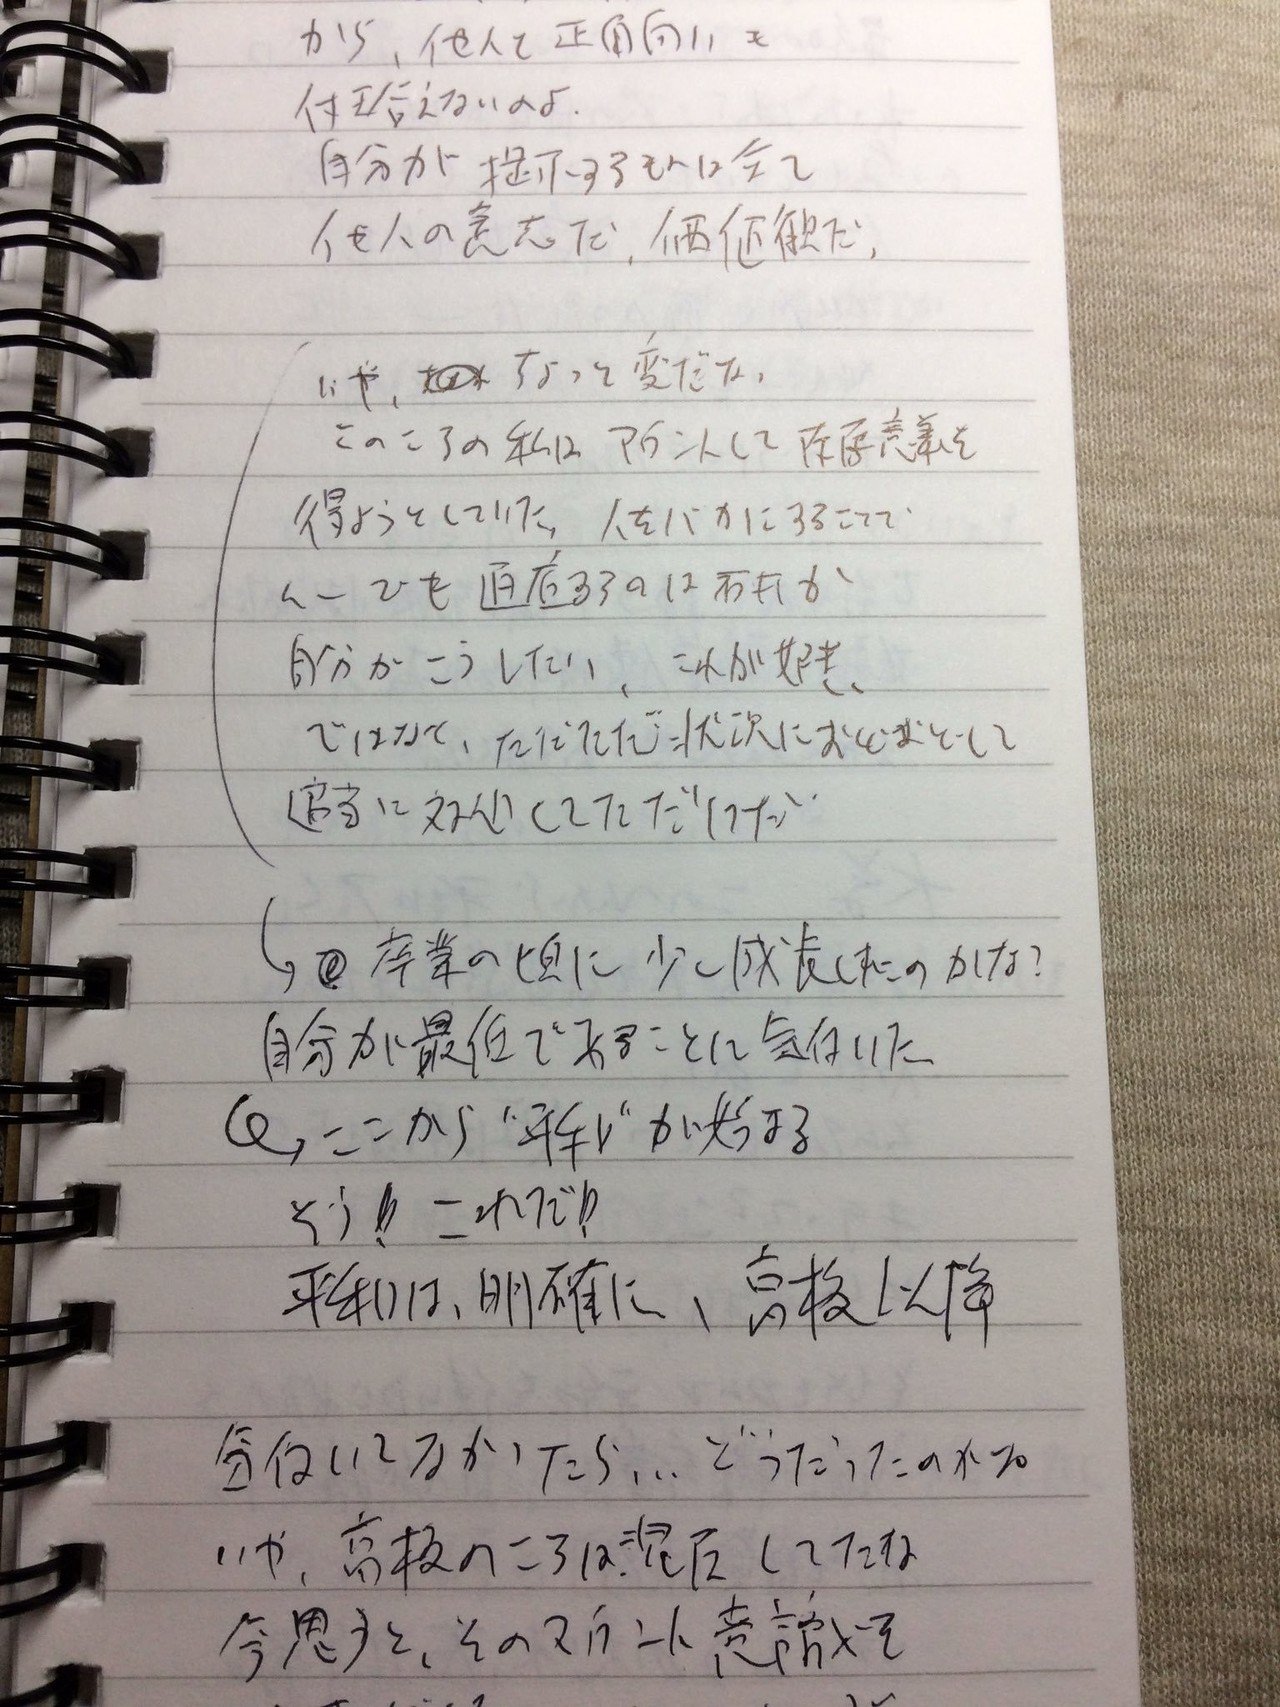 から、他人と正面向いも
付き合えないのよ.
自分が提示するものは全て
他人の意志だ、価値観だ、
いや、ちょっと変だな、
このころの私は マウントして 存在意義を
得ようとしていた、人をバカにすることで
んーでも
自分がこうしたい、これが好き、
ではなく、ただただ状況におどおどして
適当に対処してただけだ
卒業の頃に少し成長したのかな?
自分が最低であることに気付いた
ここから"平和"が始まる
そう!! これだ!!
平和は、明確に、高校以降
気付いてなかったら、... どうだったのかな
いや、高校のころは混乱してたな
今思うと、そのマウント意識を